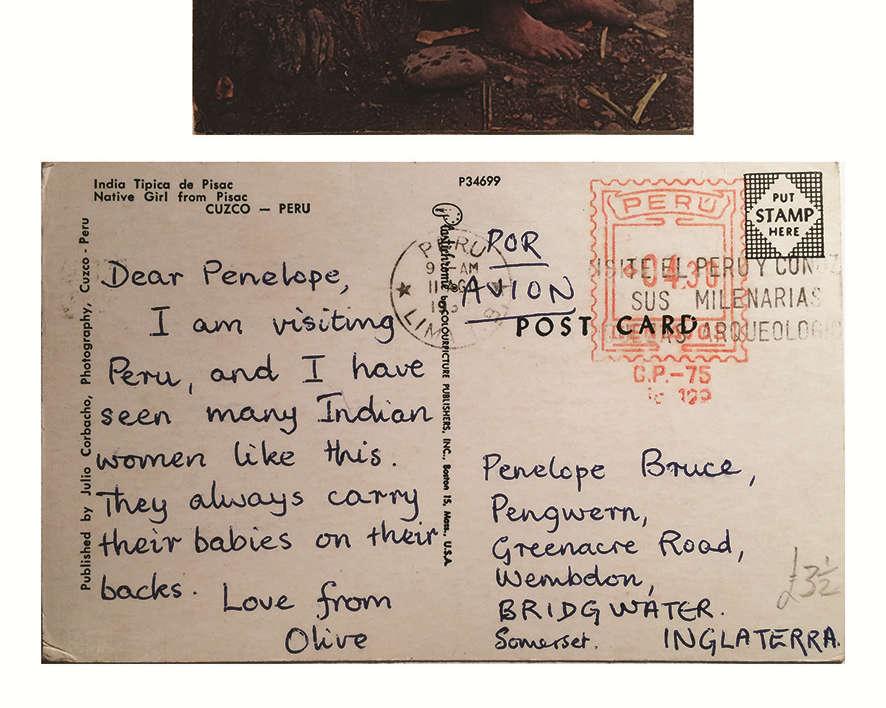 India Tipica de Pisac
Native Girl from Pisac
CUZCO — PERU
P34699
Published by Julio Corbacho, Photography, Cuzco - Peru
Plastichrome by COLOURPICTURE PUBLISHERS, INC., Boston 15, Mass., U.S.A.
Dear Penelope,
I am visiting
Peru, and I have
seen many Indian
women like this.
They always carry
their babies on their
backs. Love from
Olive
POR
AVION
PERU
9 - AM
LIMA
PERU
04.30
C.P.-75
PUT
STAMP
HERE
VISITE EL PERU Y CONOZ
SUS MILENARIAS
ARQUEOLOGIC
POST CARD
Penelope Bruce,
Pengwern,
Greenacre Road,
Wembdon,
BRIDGWATER.
Somerset. INGLATERRA.
£3½